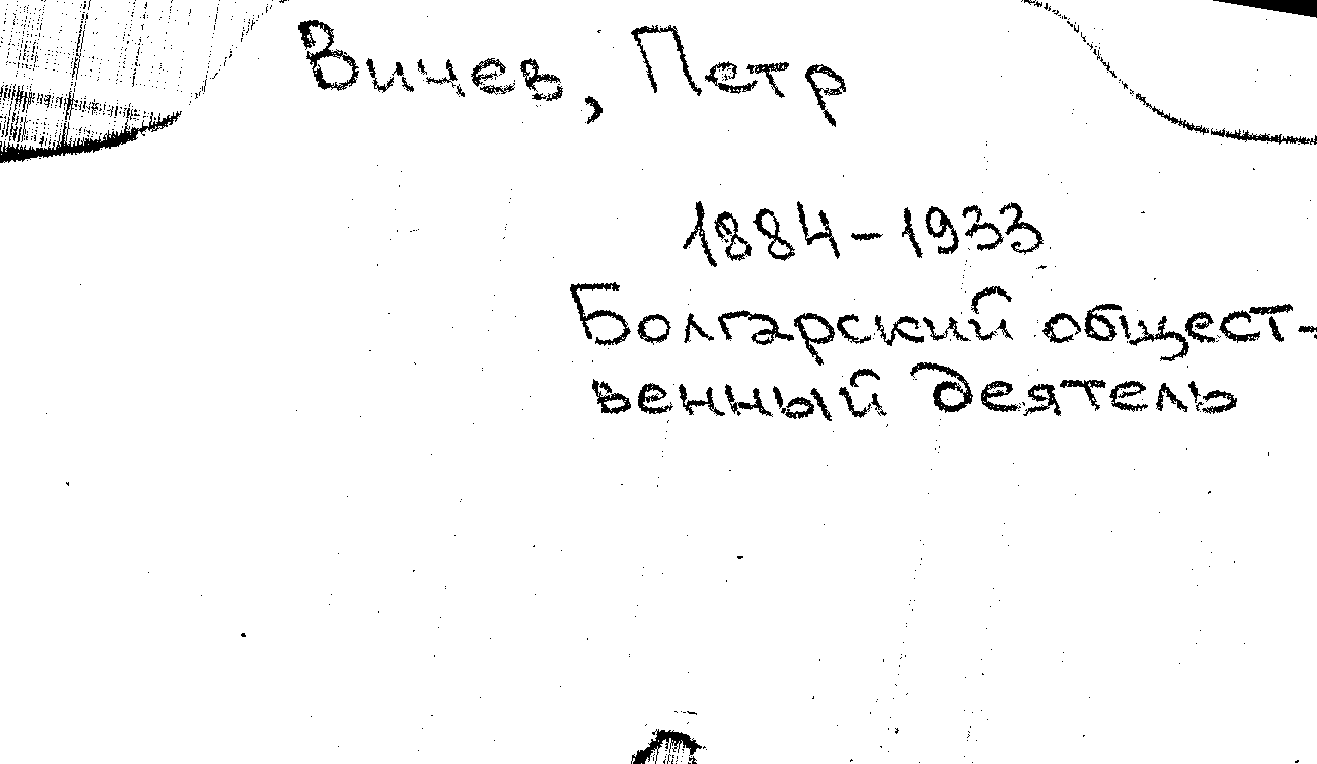 Вичев, Петр
1884-1933
Болгарский общест-
венный деятель